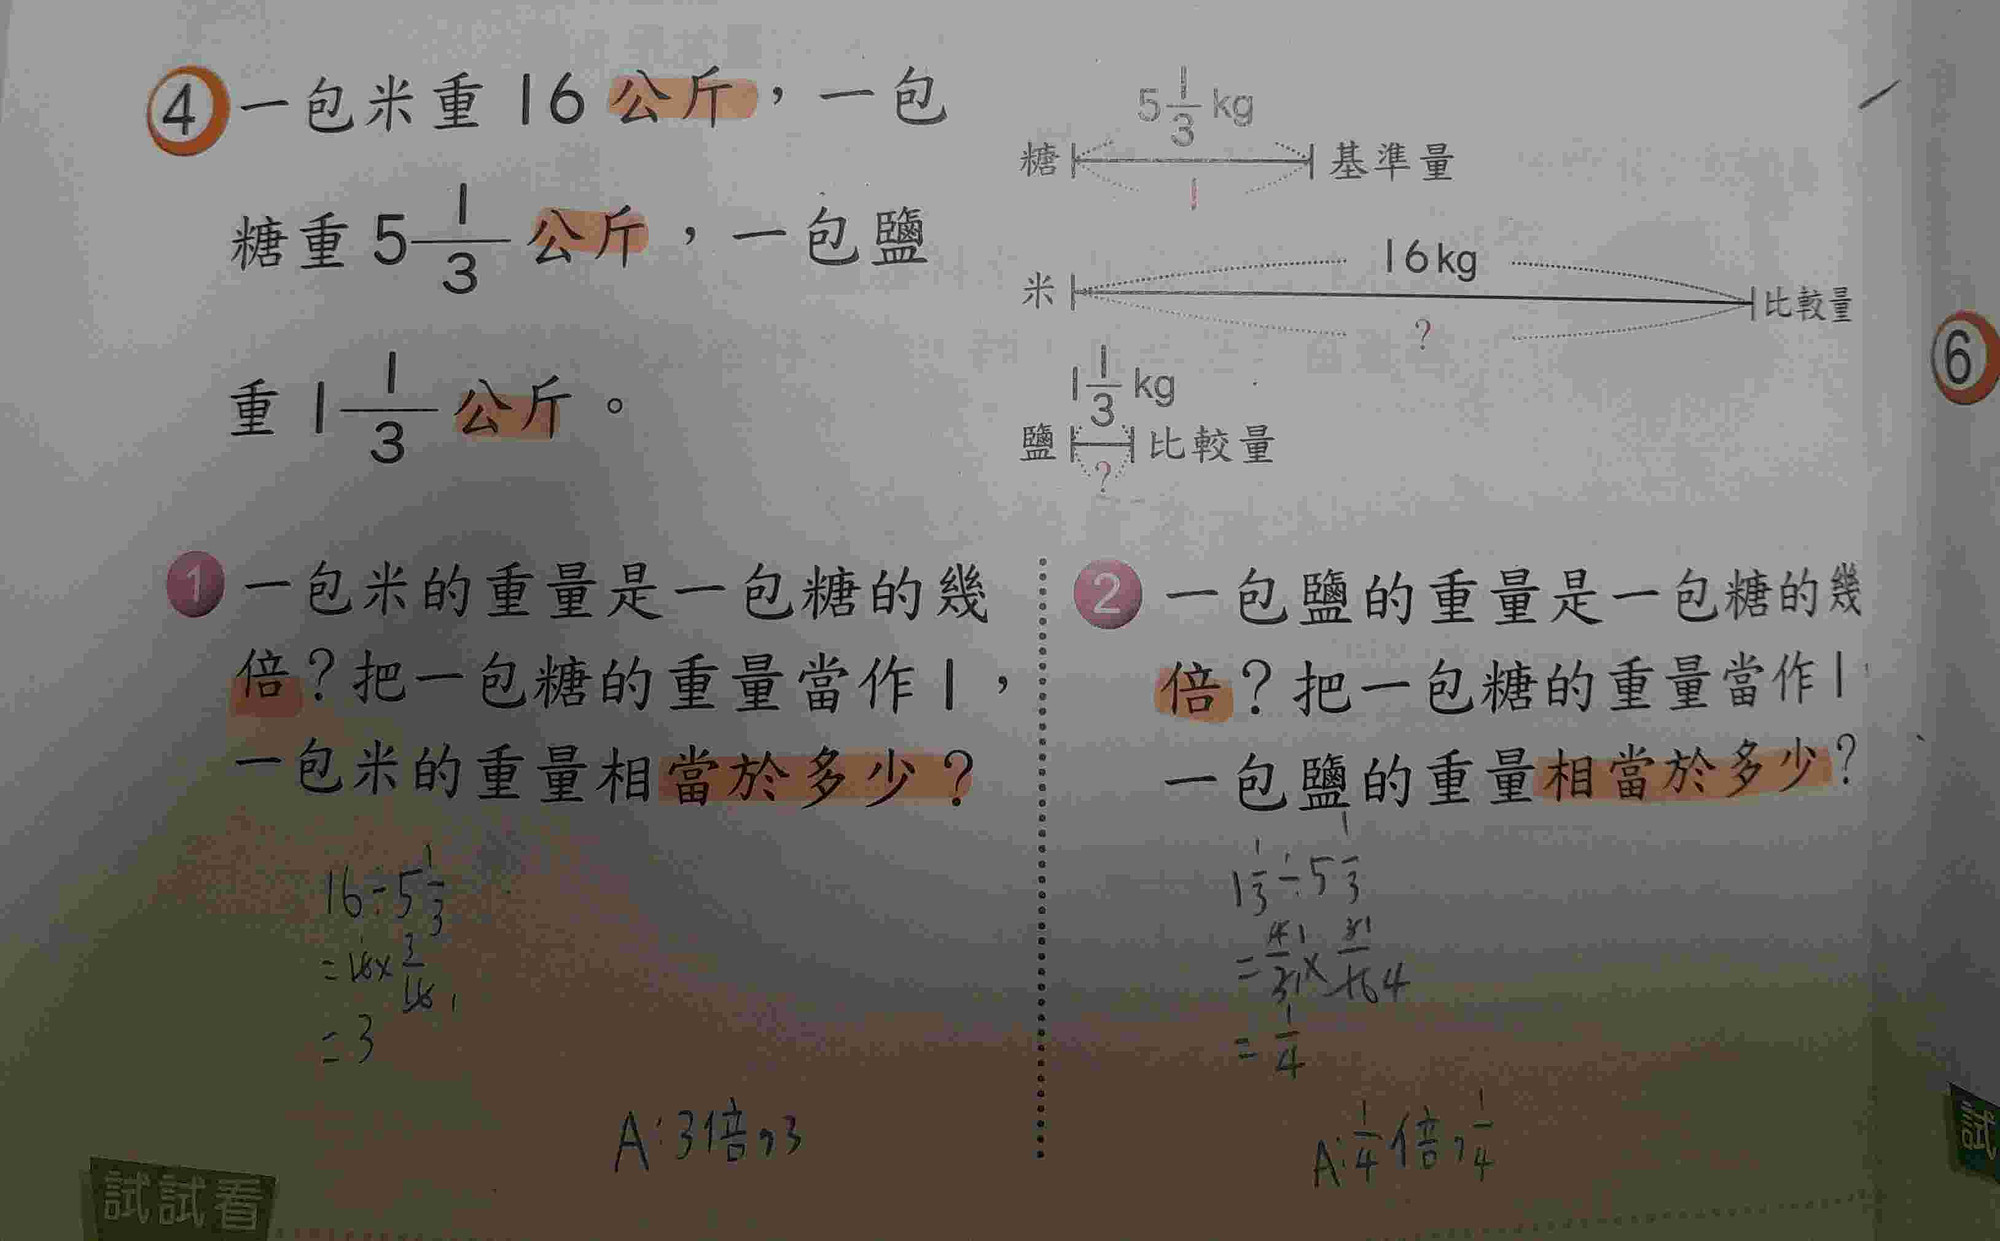 4 一包米重 16 公斤，一包
糖重 5 1/3 公斤，一包鹽
重 1 1/3 公斤。
5 1/3 kg
糖 基準量
1
16 kg
米 比較量
?
1 1/3 kg
鹽 比較量
?
6
1 一包米的重量是一包糖的幾
倍？把一包糖的重量當作1，
一包米的重量相當於多少？
16÷5 1/3
=16×3/16 1
=3
A:3倍,3
2 一包鹽的重量是一包糖的幾
倍？把一包糖的重量當作1，
一包鹽的重量相當於多少？
1 1/3÷5 1/3
=4 1/3 1×3 1/16 4
=1/4
A:1/4倍,1/4
試試看
試